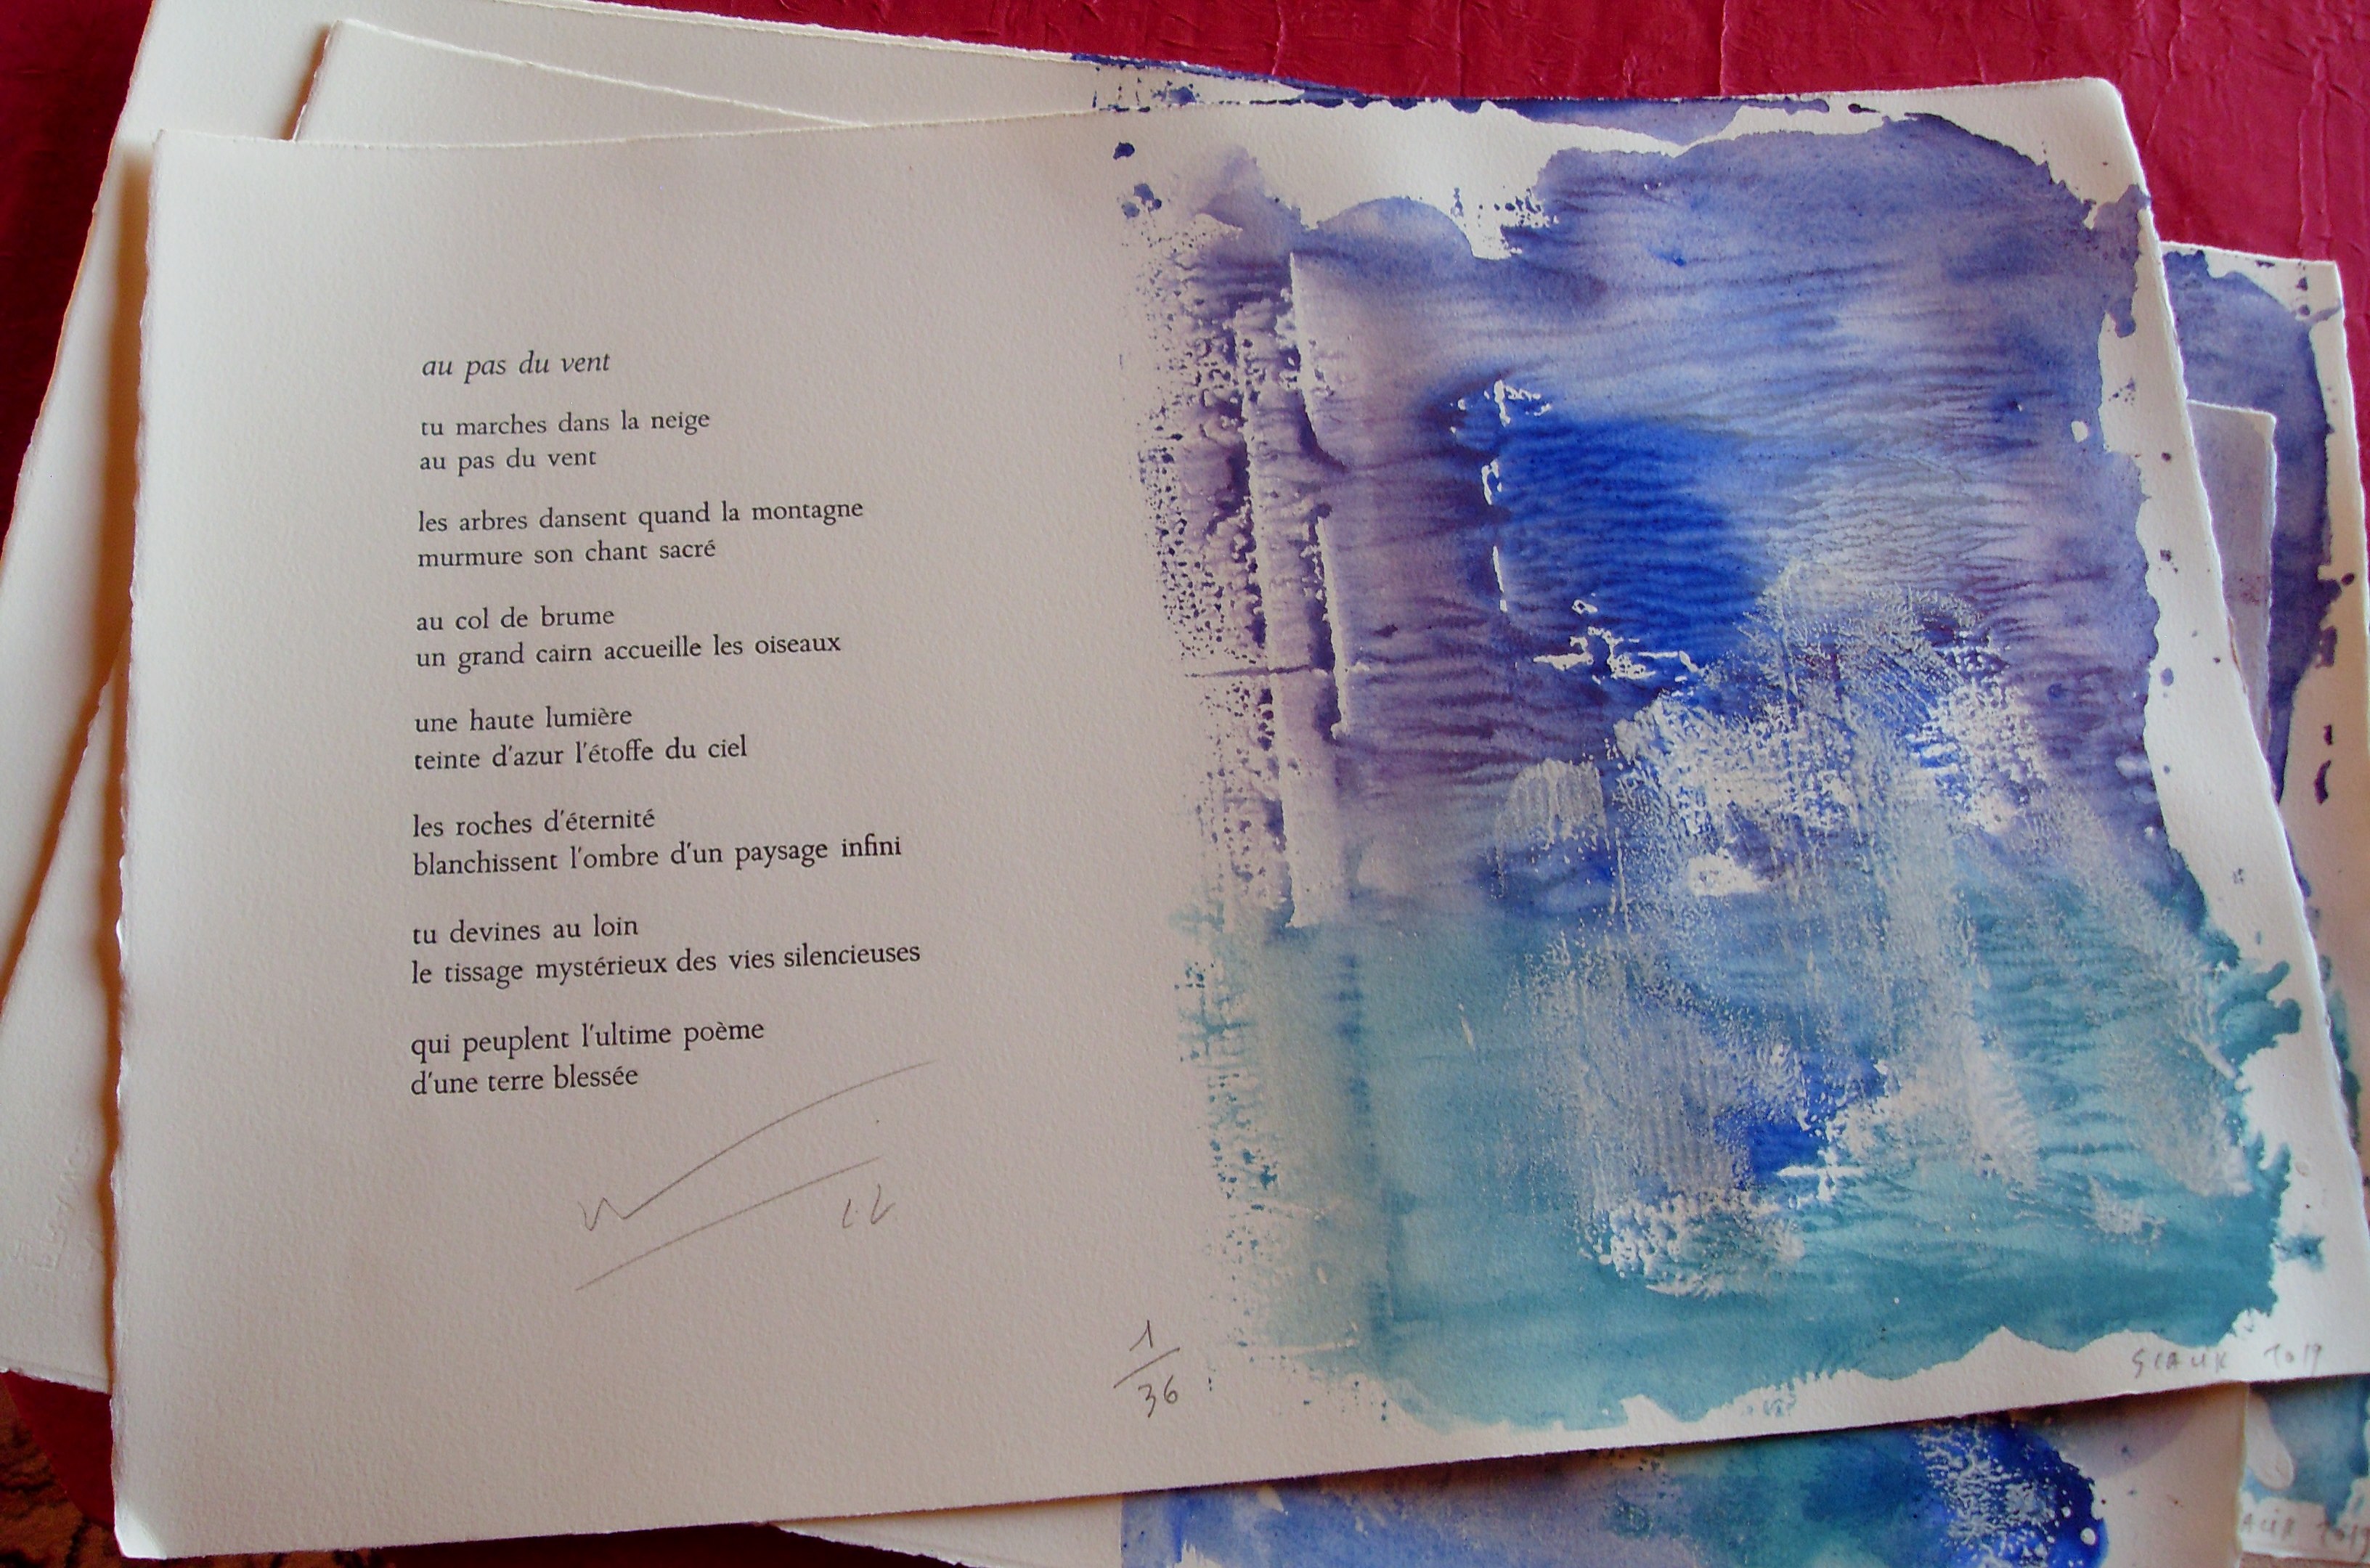 au pas du vent
tu marches dans la neige
au pas du vent
les arbres dansent quand la montagne
murmure son chant sacré
au col de brume
un grand cairn accueille les oiseaux
une haute lumière
teinte d'azur l'étoffe du ciel
les roches d'éternité
blanchissent l'ombre d'un paysage infini
tu devines au loin
le tissage mystérieux des vies silencieuses
qui peuplent l'ultime poème
d'une terre blessée
1
36
2019